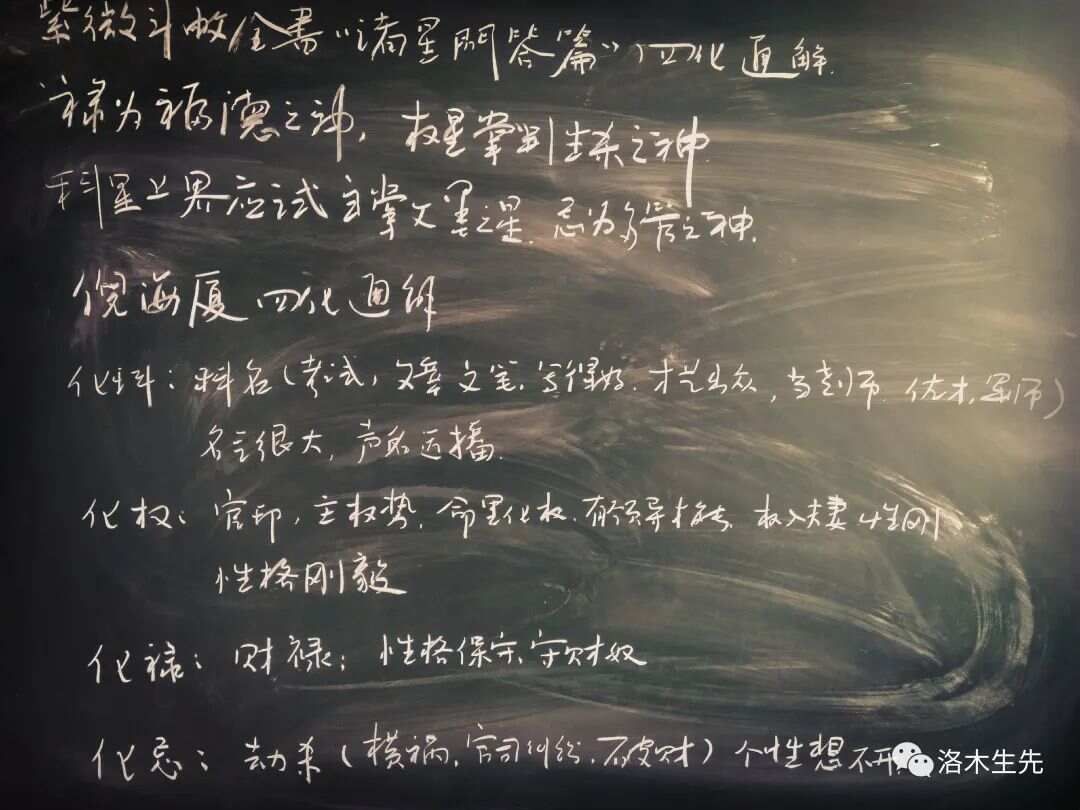 紫微斗数全书“诸星問答篇”四化通解.
禄为福德之神，权星掌判生杀之神.
科星上界应试主掌文墨之星.忌为多管之神.
倪海厦四化通解
化科：科名（考试，文章文笔，写得好.才艺出众，当老师.佐才，军师）
名声很大，声名远播.
化权：官印，主权势，命里化权.有领导才能 权入夫妻 性刚
性格刚毅
化禄：财禄；性格保守、守财奴
化忌：劫杀（横祸，官司纠纷，破财）个性想不开
洛木生先